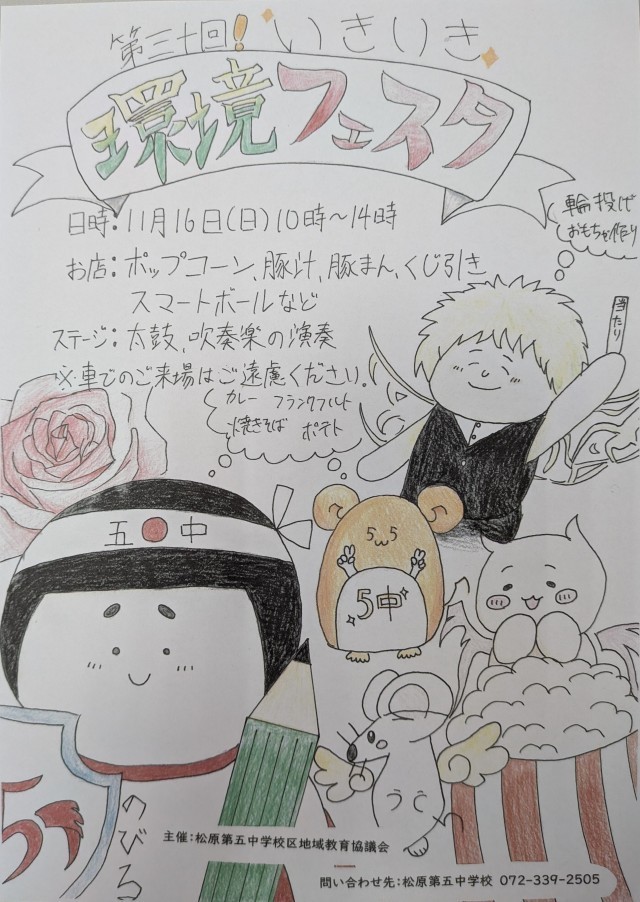 第三十回!いきいき
環境フェスタ
日時:11月16日(日)10時〜14時
お店:ポップコーン、豚汁、豚まん、くじ引き
スマートボールなど
ステージ:太鼓、吹奏楽の演奏
※車でのご来場はご遠慮ください。
輪投げ
おもちゃ作り
当たり
カレー フランクフルト
焼きそば ポテト
五中
5中
のびる
主催:松原第五中学校区地域教育協議会
問い合わせ先:松原第五中学校 072-339-2505